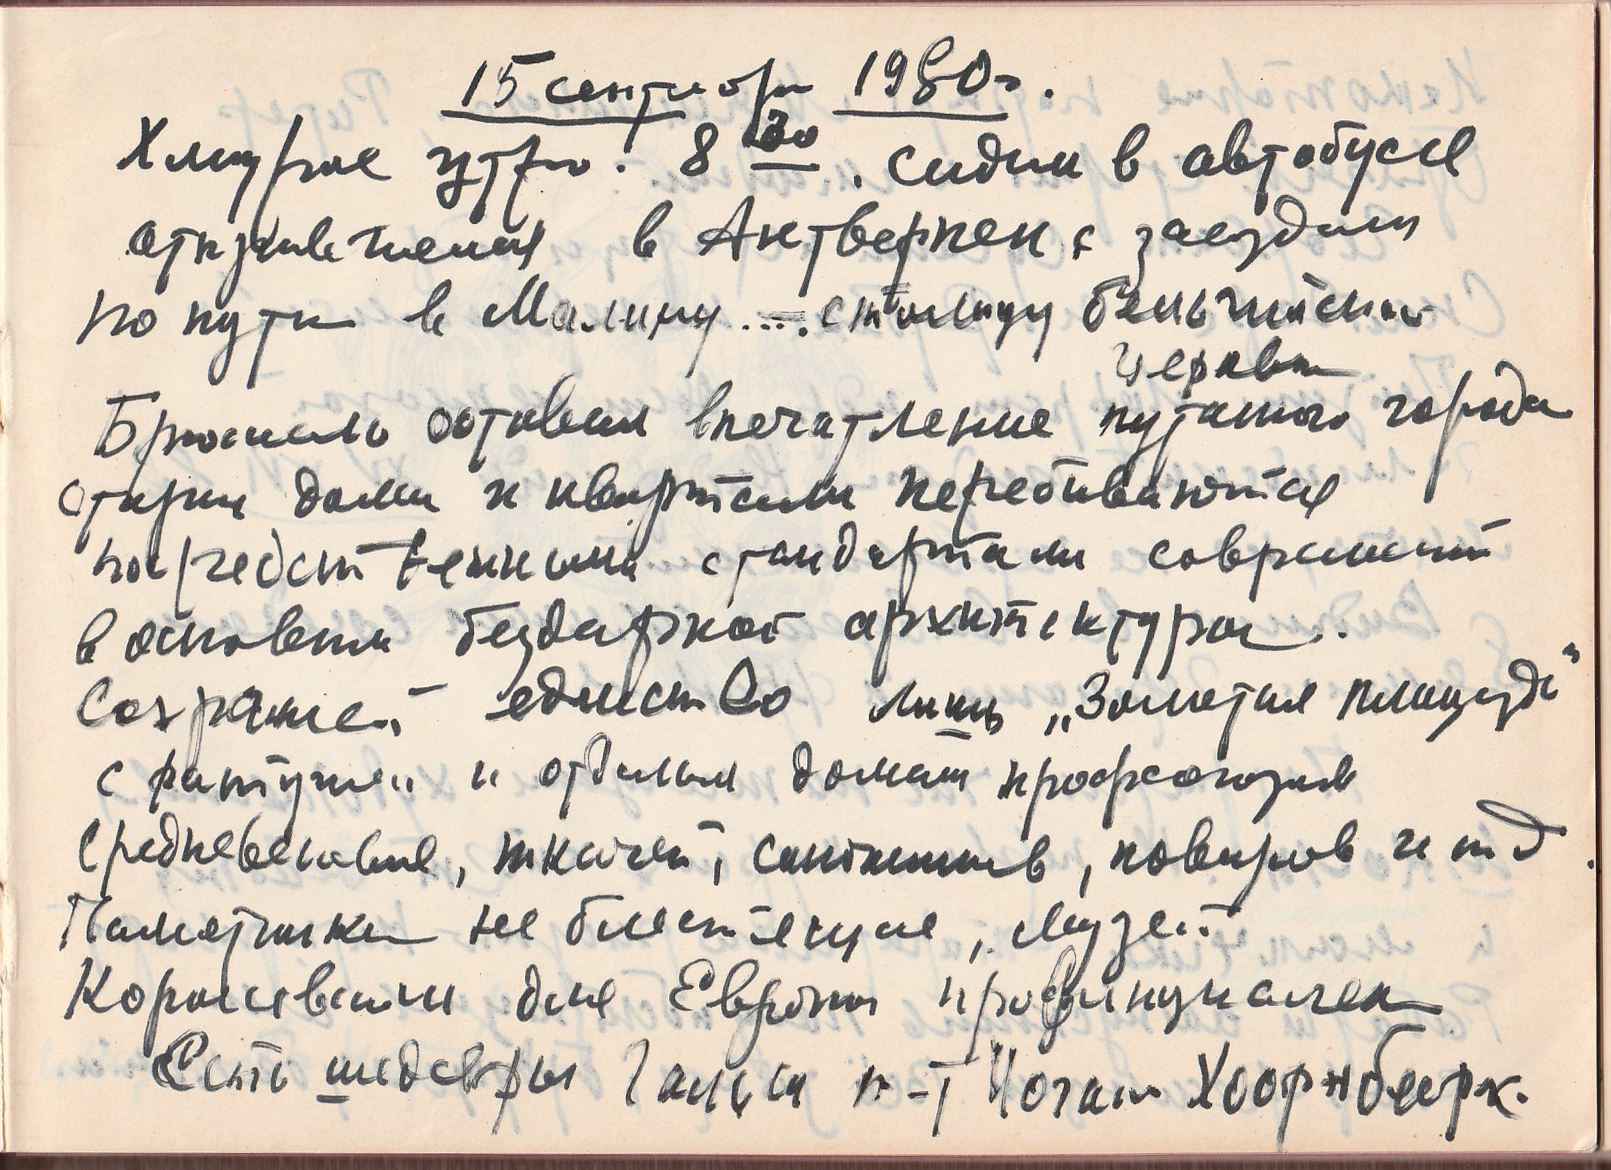 15 сентября 1980г.
Хмурое утро. 8 30. сидим в автобусе
отправляемся в Антверпен с заездом
по пути в Малину .... столицу бельгийской
церкви
Брюссель оставил впечатление путаного города
старые дома и кварталы перебиваются
посредственными стандартами современной
в основном бездарной архитектуры.
Сохраняет единство лишь „Золотая площадь"
с ратушей и отдельными домами профсоюзов
средневековья, ткачей, поваров и т д.
Памятники не блестящие, музей
Королевский для Европы провинциален
Есть шедевры Гальса п-т Иоган Хоорнбеерк.